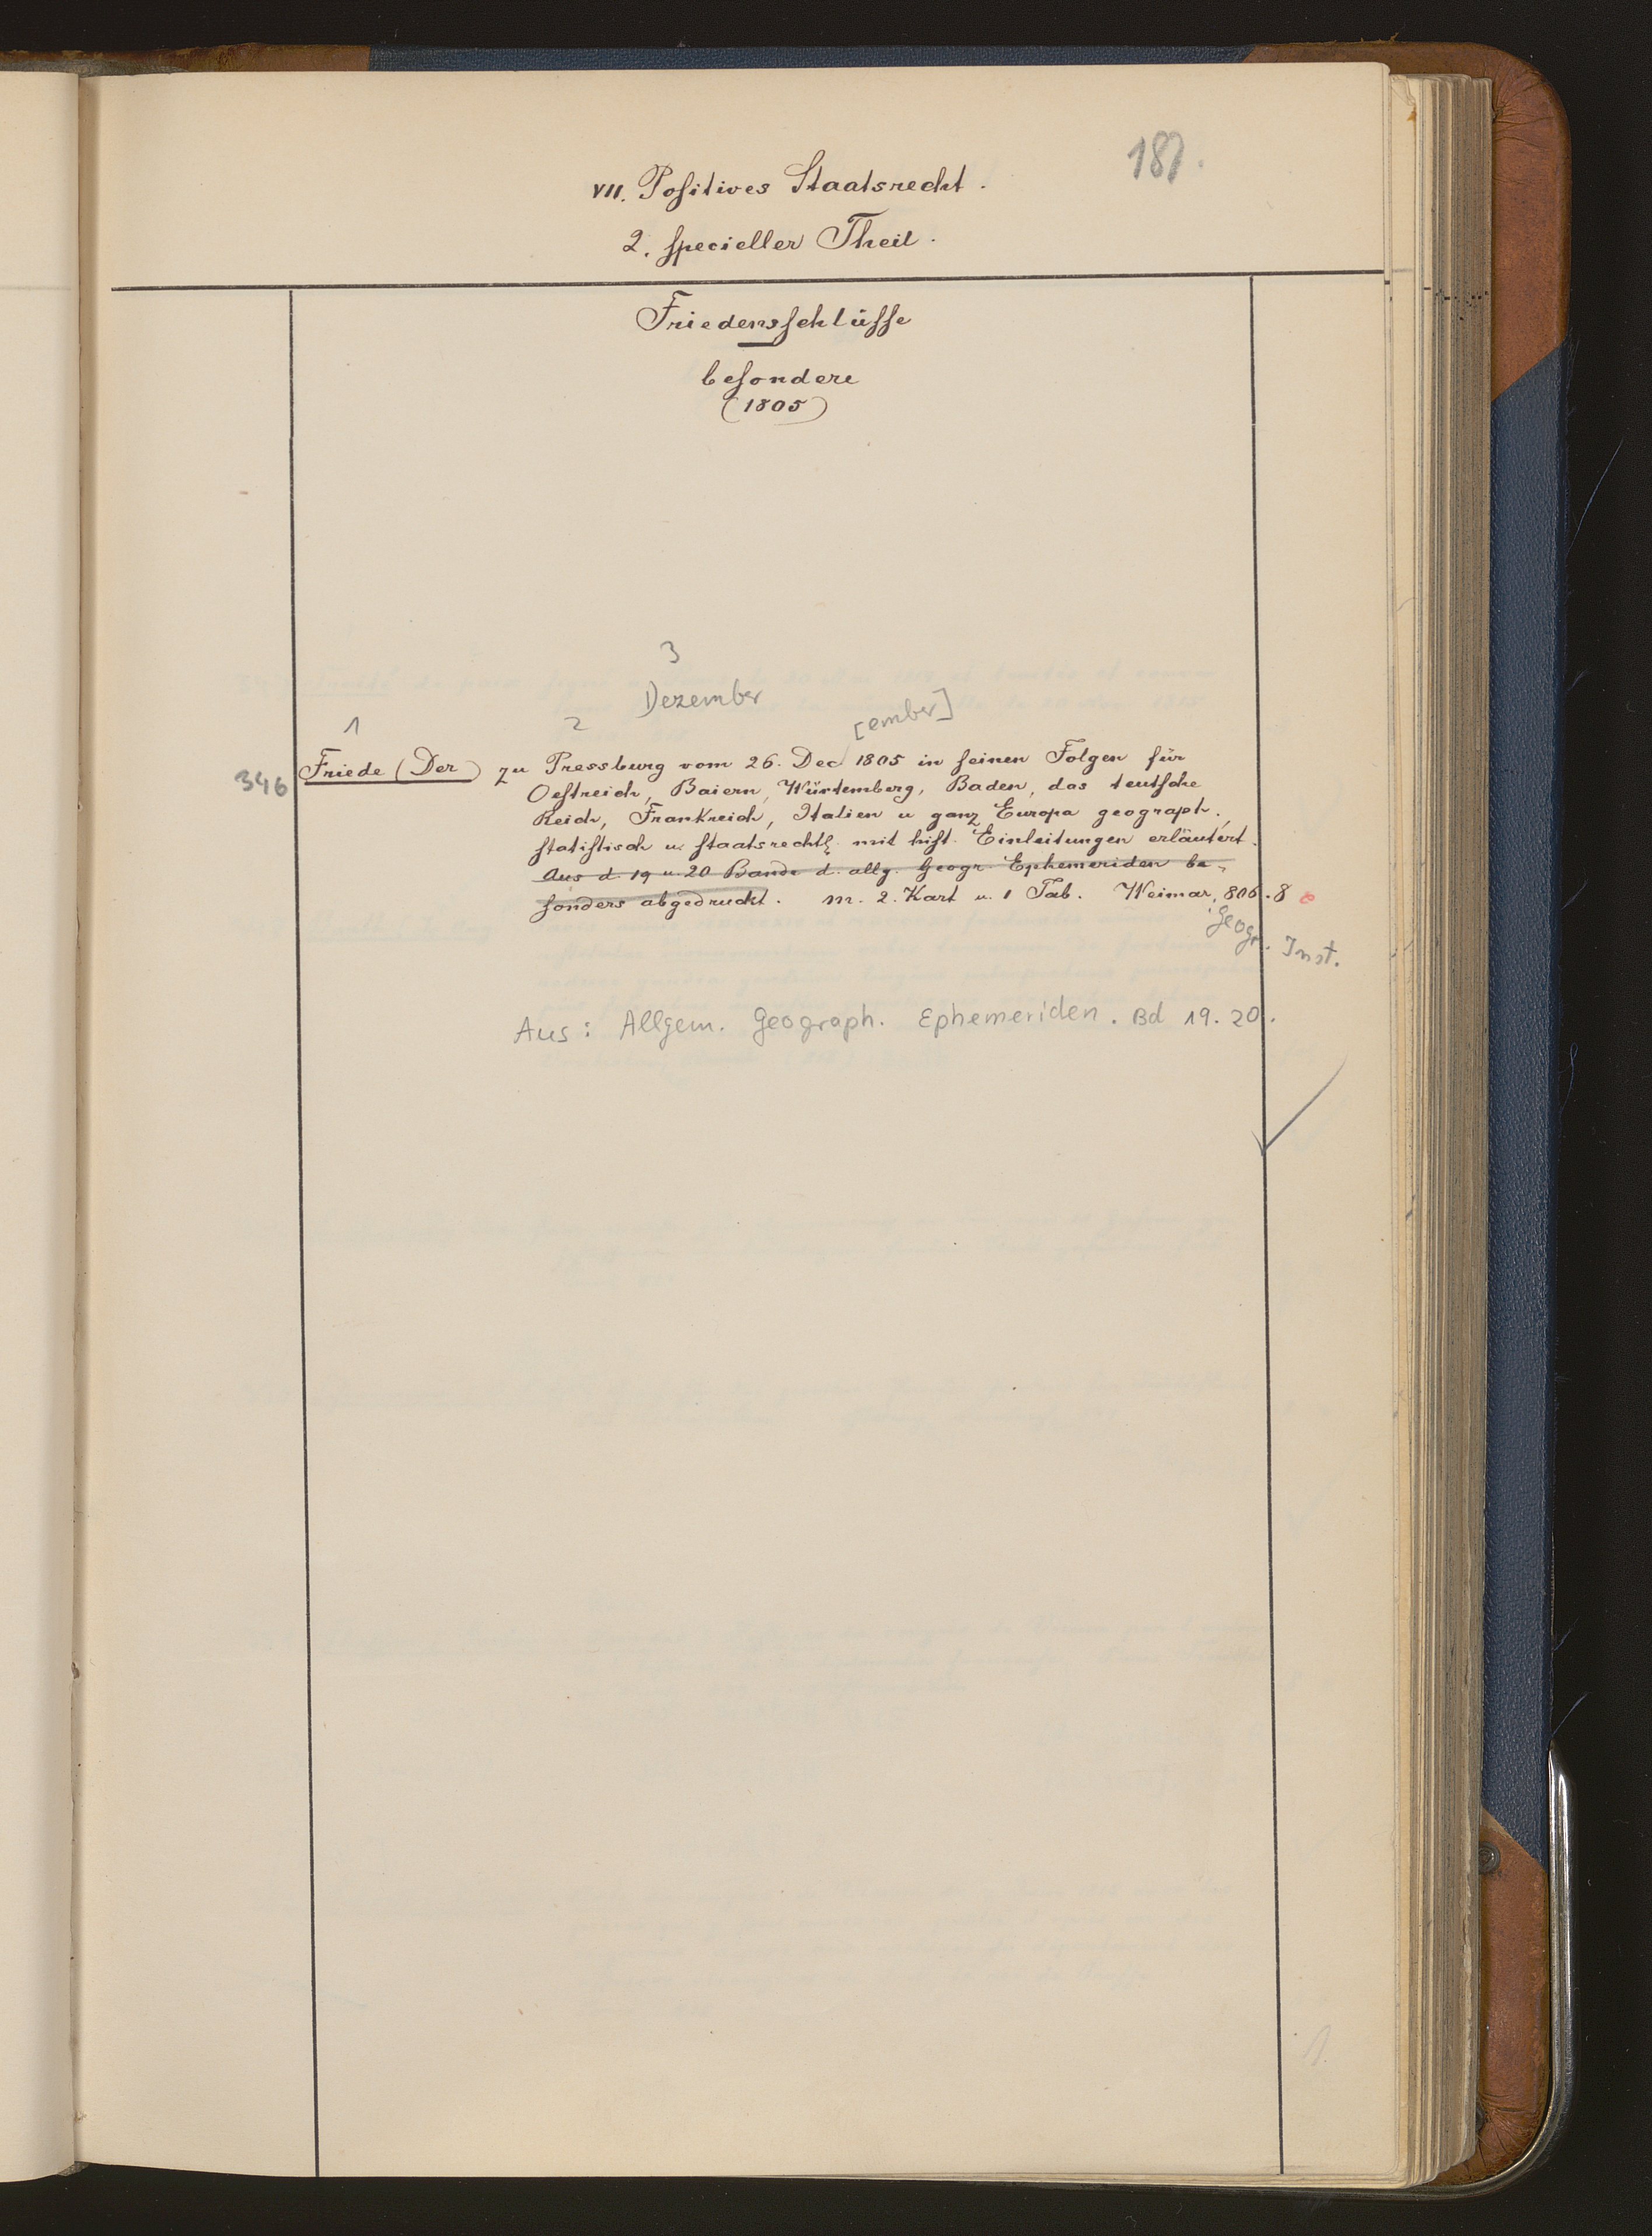 187.
VII. Positives Staatsrecht.
2. specieller Theil.
Friedensschlüsse
besondere
(1805)
3
Dezember
1 2 [ember]
346 Friede (Der) zu Pressburg vom 26. Dec 1805 in seinen Folgen für
Oestreich, Baiern, Würtemberg, Baden, das teutsche
Reich, Frankreich, Italien u ganz Europa geograph.,
statistisch u. staatsrechtl. mit hist. Einleitungen erläutert.
Aus d. 19 u. 20 Bande d. allg. Geogr. Ephemeriden be-
sonders abgedruckt. m. 2. Kart u. 1 Tab. Weimar, 806. 8
Geogr. Inst.
Aus: Allgem. Geograph. Ephemeriden. Bd 19. 20.